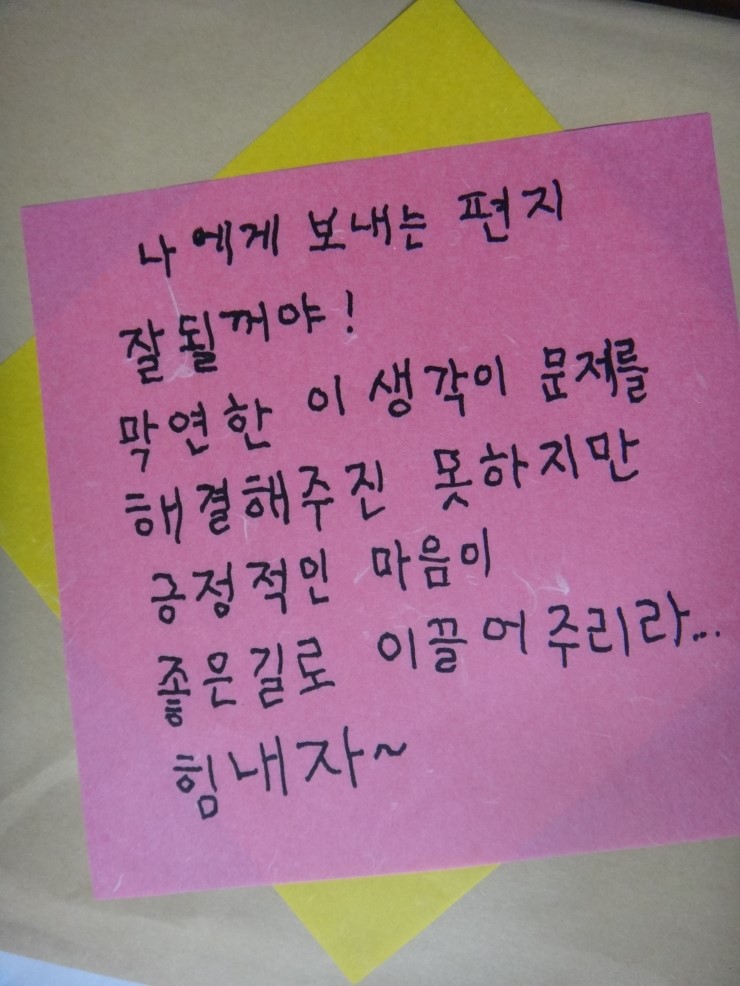 나에게 보내는 편지
잘될꺼야!
막연한 이 생각이 문제를
해결해주진 못하지만
긍정적인 마음이
좋은길로 이끌어주리라...
힘내자~